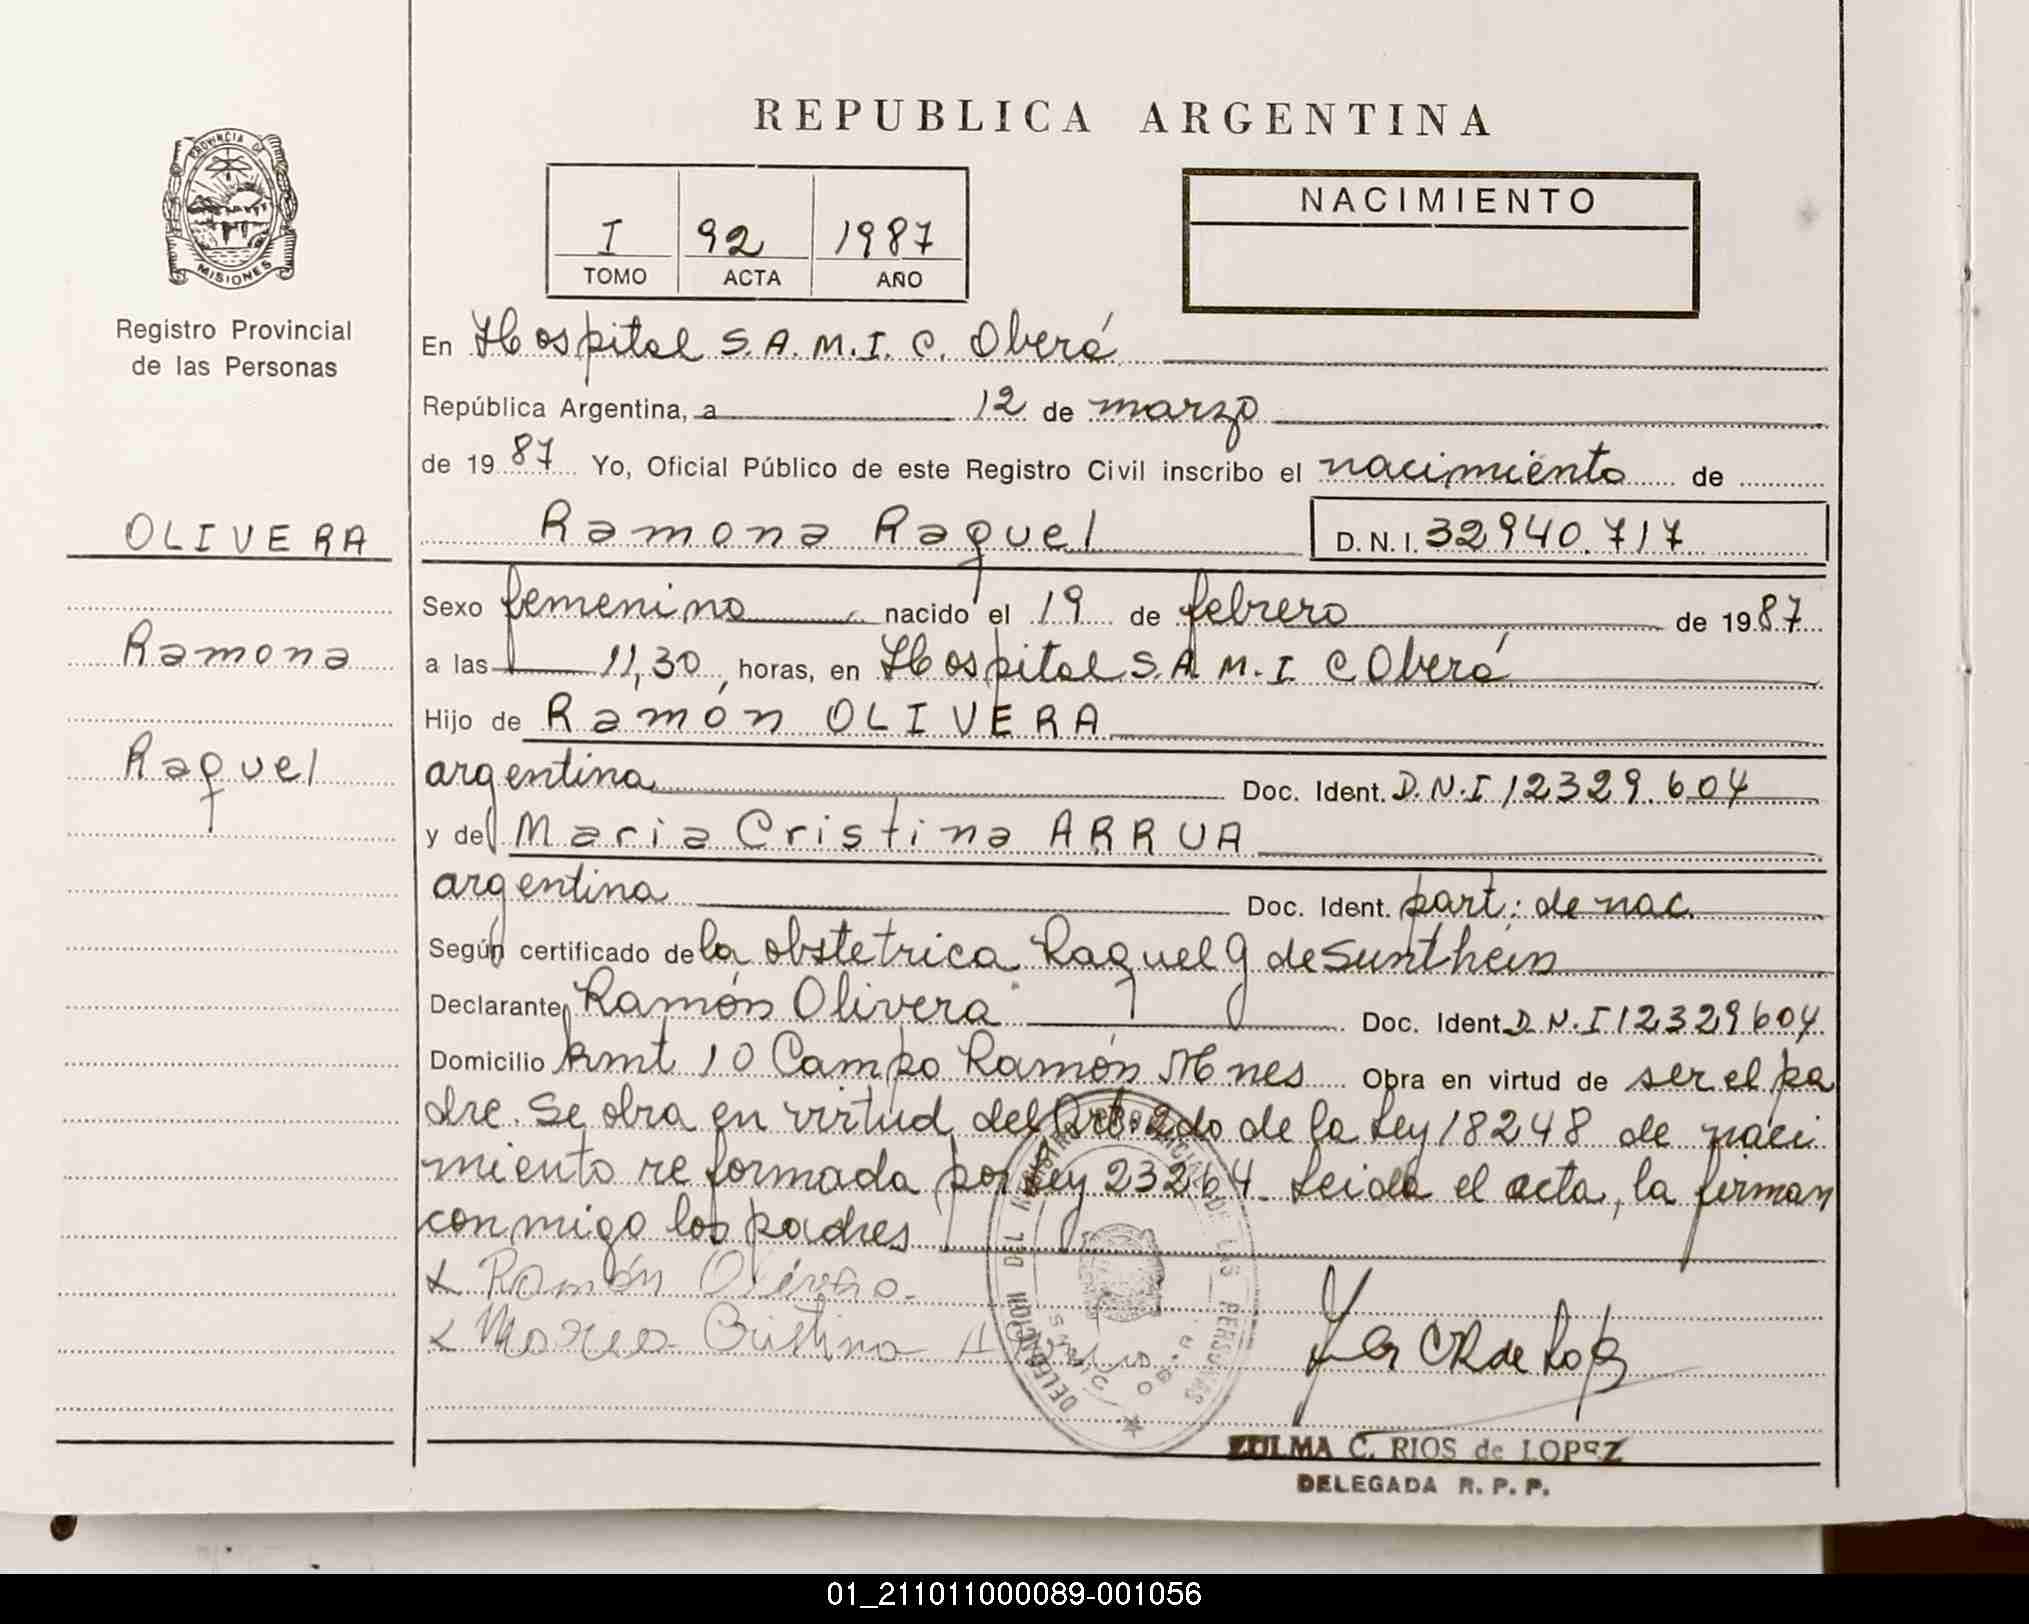 REPUBLICA ARGENTINA
PROVINCIA DE
MISIONES
Registro Provincial
de las Personas
I 92 1987
TOMO ACTA AÑO
NACIMIENTO
En Hospital S.A.M.I.C. Oberá
República Argentina, a 12 de marzo
de 1987 Yo, Oficial Público de este Registro Civil inscribo el nacimiento de
OLIVERA
Ramona Raquel D.N.I. 32940.717
Sexo femenino nacido el 19 de febrero de 1987
Ramona
a las 11,30, horas, en Hospital S.A.M.I C Oberá
Hijo de Ramón OLIVERA
Raquel
argentina Doc. Ident. D.N.I 12329.604
y de Maria Cristina ARRUA
argentina Doc. Ident. part: de nac.
Según certificado de la obstetrica Raquel G de Sunthein
Declarante Ramón Olivera Doc. Ident D.N.I 12329604
Domicilio kmt 10 Campo Ramón Mnes Obra en virtud de ser el pa
dre. Se obra en virtud del Art. 2do de la Ley 18248 de naci
miento reformada por Ley 23264. Leida el acta, la firman
conmigo los padres
Ramón Olivera.
Maria Cristina
DELEGACION DEL REGISTRO PROVINCIAL DE LAS PERSONAS
ZULMA C. RIOS de LOPEZ
DELEGADA R. P. P.
01_211011000089-001056